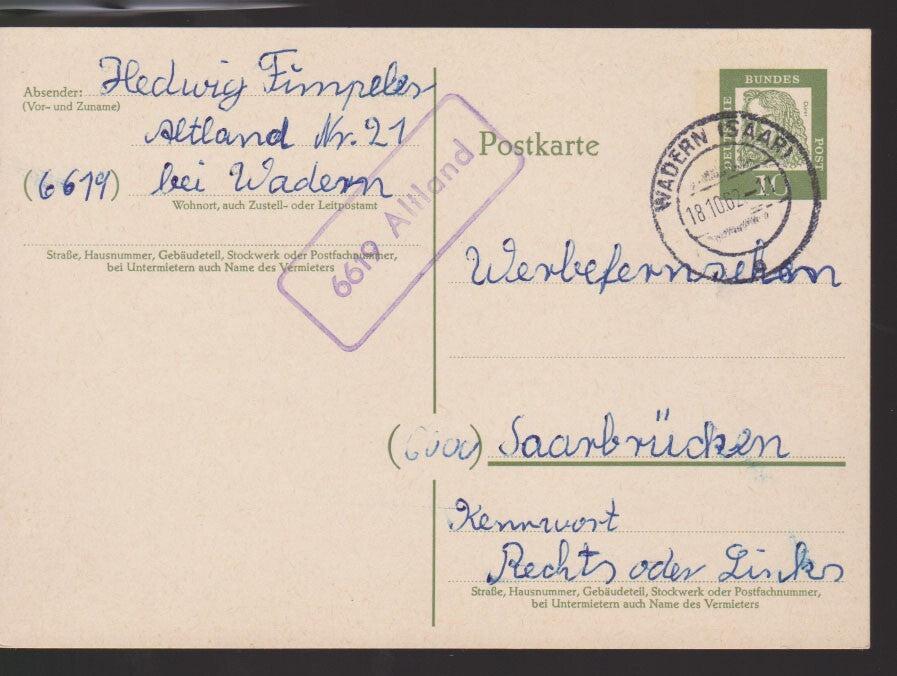 Absender: Hedwig Fimpeler
(Vor- und Zuname)
Altland Nr. 21
(6619) bei Wadern
Wohnort, auch Zustell- oder Leitpostamt
Straße, Hausnummer, Gebäudeteil, Stockwerk oder Postfachnummer,
bei Untermietern auch Name des Vermieters
6619 Altland
Postkarte
DEUTSCHE BUNDES POST
10
WADERN (SAAR)
18.10.62
Werbefernsehen
Saarbrücken
Kennwort
Rechts oder Links
Straße, Hausnummer, Gebäudeteil, Stockwerk oder Postfachnummer,
bei Untermietern auch Name des Vermieters